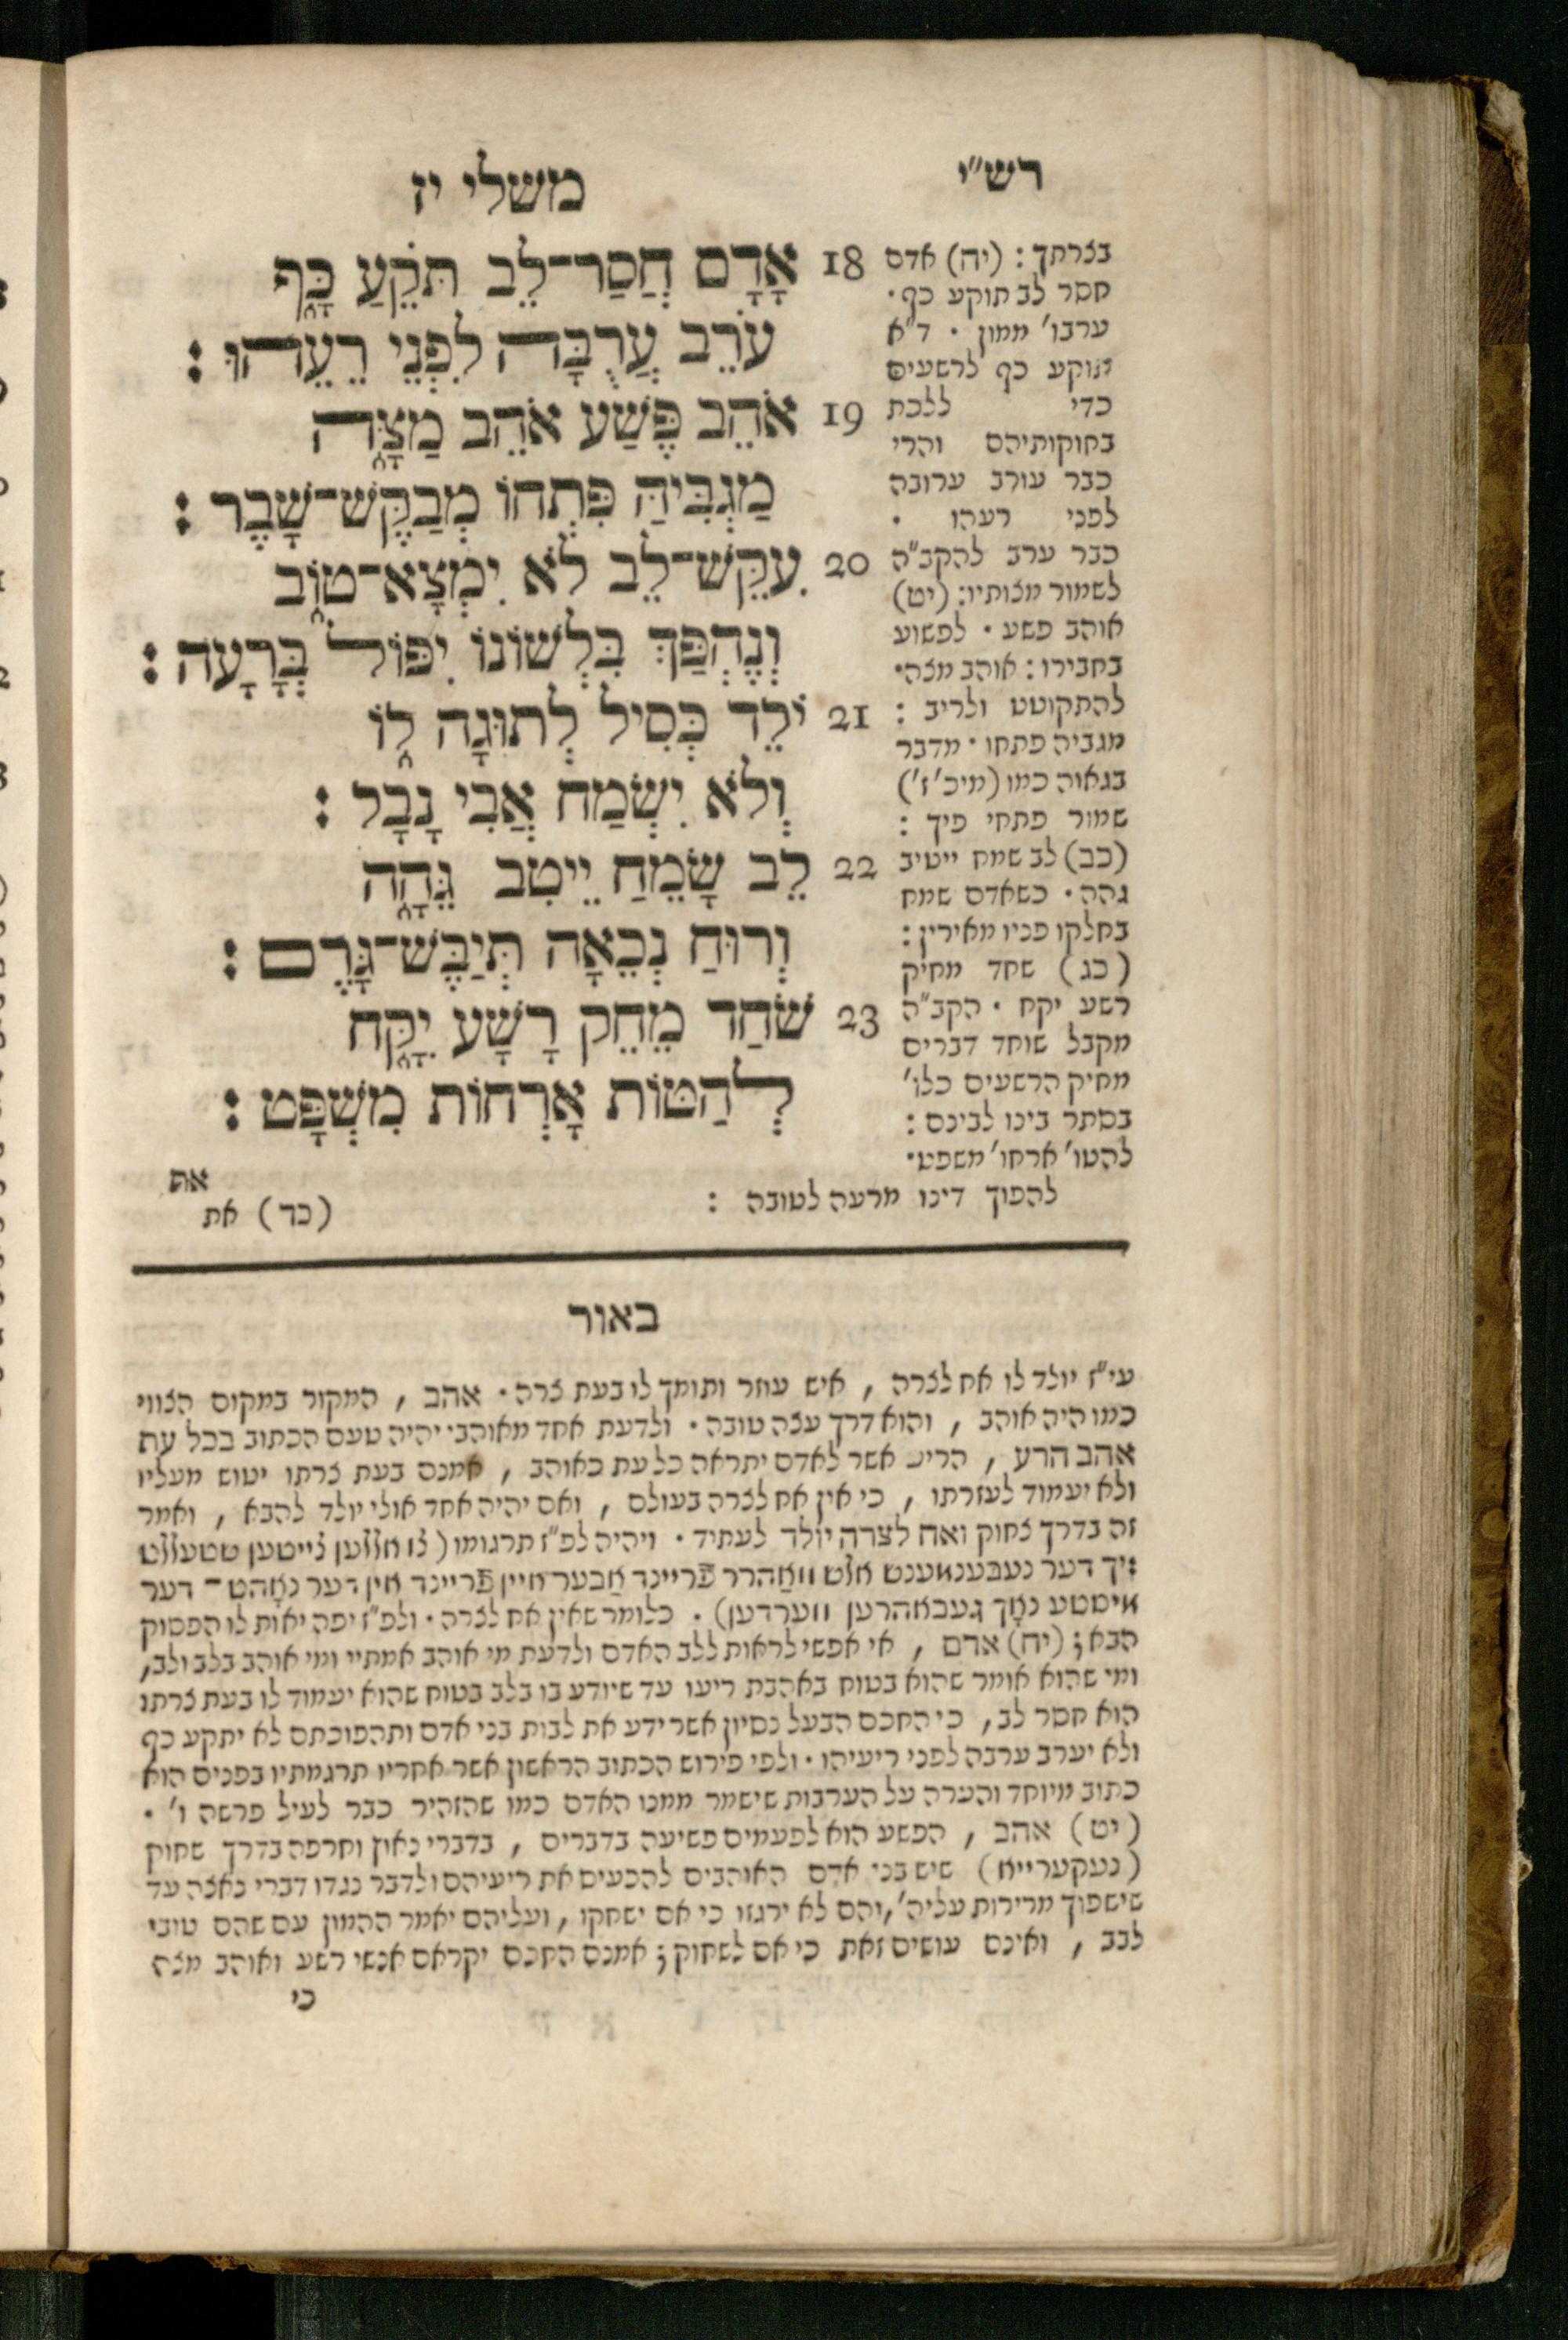 רש"י
משלי יז
בצרתך : (יח) אדם
חסר לב תוקע כף ·
ערבו' ממון · ד"א
תוקע כף לרשעים
כדי ללכת
בחוקותיהם והרי
כבר עורב ערובה
לפני רעהו ·
כבר ערב להקב"ה
לשמור מצותיו: (יט)
אוהב פשע · לפשוע
בחבירו : אוהב מצה ·
להתקוטט ולריב :
מגביה פתחו · מדבר
בגאוה כמו (מיכ' ז')
שמור פתחי פיך :
(כב) לב שמח ייטיב
גהה · כשאדם שמח
בחלקו פניו מאירין :
(כג) שחד מחיק
רשע יקח · הקב"ה
מקבל שוחד דברים
מחיק הרשעים כלו'
בסתר בינו לבינם :
להטו' ארחו' משפט ·
להפוך דינו מרעה לטובה :
(כד) את
18 אָדָם חֲסַר־לֵב תֹּקֵעַ כָּף
עֹרֵב עֲרֻבָּה לִפְנֵי רֵעֵהוּ :
19 אֹהֵב פֶּשַׁע אֹהֵב מַצָּה
מַגְבִּיהַּ פִּתְחוֹ מְבַקֶּשׁ־שָׁבֶר :
20 עִקֵּשׁ־לֵב לֹא יִמְצָא־טוֹב
וְנֶהְפַּךְ בִּלְשׁוֹנוֹ יִפּוֹל בְּרָעָה :
21 יֹלֵד כְּסִיל לְתוּגָה לוֹ
וְלֹא יִשְׂמַח אֲבִי נָבָל :
22 לֵב שָׂמֵחַ יֵיטִב גֵּהָה
וְרוּחַ נְכֵאָה תְּיַבֶּשׁ־גָּרֶם :
23 שֹׁחַד מֵחֵק רָשָׁע יִקָּח
לְהַטּוֹת אָרְחוֹת מִשְׁפָּט :
את
באור
עי"ז יולד לו אח לצרה , איש עוזר ותומך לו בעת צרה · אהב , המקור במקום הצווי
כמו היה אוהב , והוא דרך עצה טובה · ולדעת אחד מאוהבי יהיה טעם הכתוב בכל עת
אהב הרע , הריע אשר לאדם יתראה כל עת כאוהב , אמנם בעת צרתו יטוש מעליו
ולא יעמוד לעזרתו , כי אין אח לצרה בעולם , ואם יהיה אחד אולי יולד להבא , ואמר
זה בדרך צחוק ואח לצרה יולד לעתיד · ויהיה לפ"ז תרגומו (צו אללען צייטען שטעללט
זיך דער נעבענמענש אלס וואַהרר פֿריינד אַבער איין פֿריינד אין דער נאָהט ־ דער
מיסטע נאָך געבאהרען ווערדען) · כלומר שאין אח לצרה · ולפ"ז יפה יאות לו הפסוק
הבא ; (יח) אדם , אי אפשי לראות ללב האדם ולדעת מי אוהב אמתיי ומי אוהב בלב ולב,
ומי שהוא אומר שהוא בטוח באהבת ריעו עד שיודע בו בלב בטוח שהוא יעמוד לו בעת צרתו
הוא חסר לב , כי החכם הבעל נסיון אשר ידע את לבות בני אדם ותהפוכתם לא יתקע כף
ולא יערב ערבה לפני ריעיהו · ולפי פירוש הכתוב הראשון אשר אחריו תרגמתיו בפנים הוא
כתוב מיוחד והערה על הערבות שישמר ממנו האדם כמו שהזהיר כבר לעיל פרשה ו' ·
(יט) אהב , הפשע הוא לפעמים פשיעה בדברים , בדברי נאון וחרפה בדרך שחוק
(נעקערייא) שיש בני אדם האוהבים להכעים את ריעיהם ולדבר נגדו דברי נאצה עד
שישפוך מרירות עליה', והם לא ירגזו כי אם ישחקו , ועליהם יאמר ההמון עם שהם טובי
לבב , ואינם עושים זאת כי אם לשחוק ; אמנם החכם יקראם אנשי רשע ואוהב מצה
כי